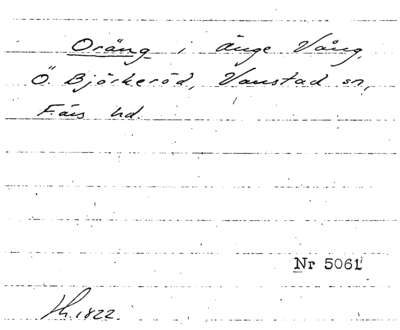 Oräng i Änge Vång,
Ö. Björkeröd, Vanstad sn,
Färs hd.
Nr 5061
1822.